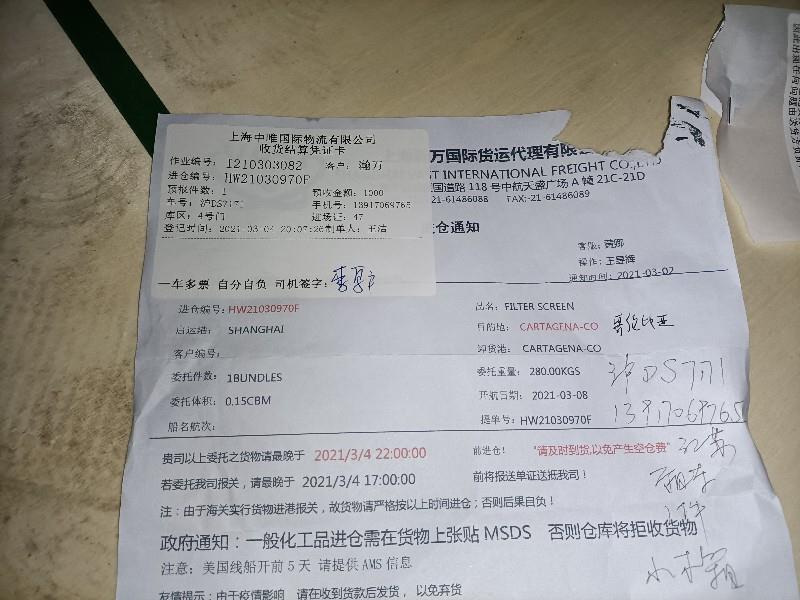 上海中唯国际物流有限公司
收货结算凭证卡
作业编号: I210303082 客户: 瀚万
进仓编号: HW21030970F
预报件数: 1 预收金额: 1000
车号: 沪DS7171 手机号: 13917069765
库区: 4号门 进场证: 47
登记时间: 2021-03-04 20:07:26制单人: 王洁
一车多票 自分自负 司机签字:
万国际货运代理有限
AST INTERNATIONAL FREIGHT CO.,LTD
国道路 118 号中航天盛广场 A 幢 21C-21D
-21-61486088 FAX:-21-61486089
仓通知
客服: 黄娜
操作:
通知时间: 2021-03-02
进仓编号: HW21030970F 品名: FILTER SCREEN
启运港: SHANGHAI 目的地: CARTAGENA-CO 哥伦比亚
客户编号: 卸货港: CARTAGENA-CO
委托件数: 1BUNDLES 委托重量: 280.00KGS
委托体积: 0.15CBM 开航日期: 2021-03-08
船名航次: 提单号: HW21030970F
沪DS7171
13917069765
贵司以上委托之货物请最晚于 2021/3/4 22:00:00 前进仓! "请及时到货,以免产生空仓费"
若委托我司报关, 请最晚于 2021/3/4 17:00:00 前将报送单证送抵我司!
注: 由于海关实行货物进港报关, 故货物请严格按以上时间进仓; 否则后果自负!
政府通知: 一般化工品进仓需在货物上张贴 MSDS 否则仓库将拒收货物
注意: 美国线船开前 5 天 请提供 AMS 信息
友情提示: 由于疫情影响 请在收到货款后发货, 以免弃货